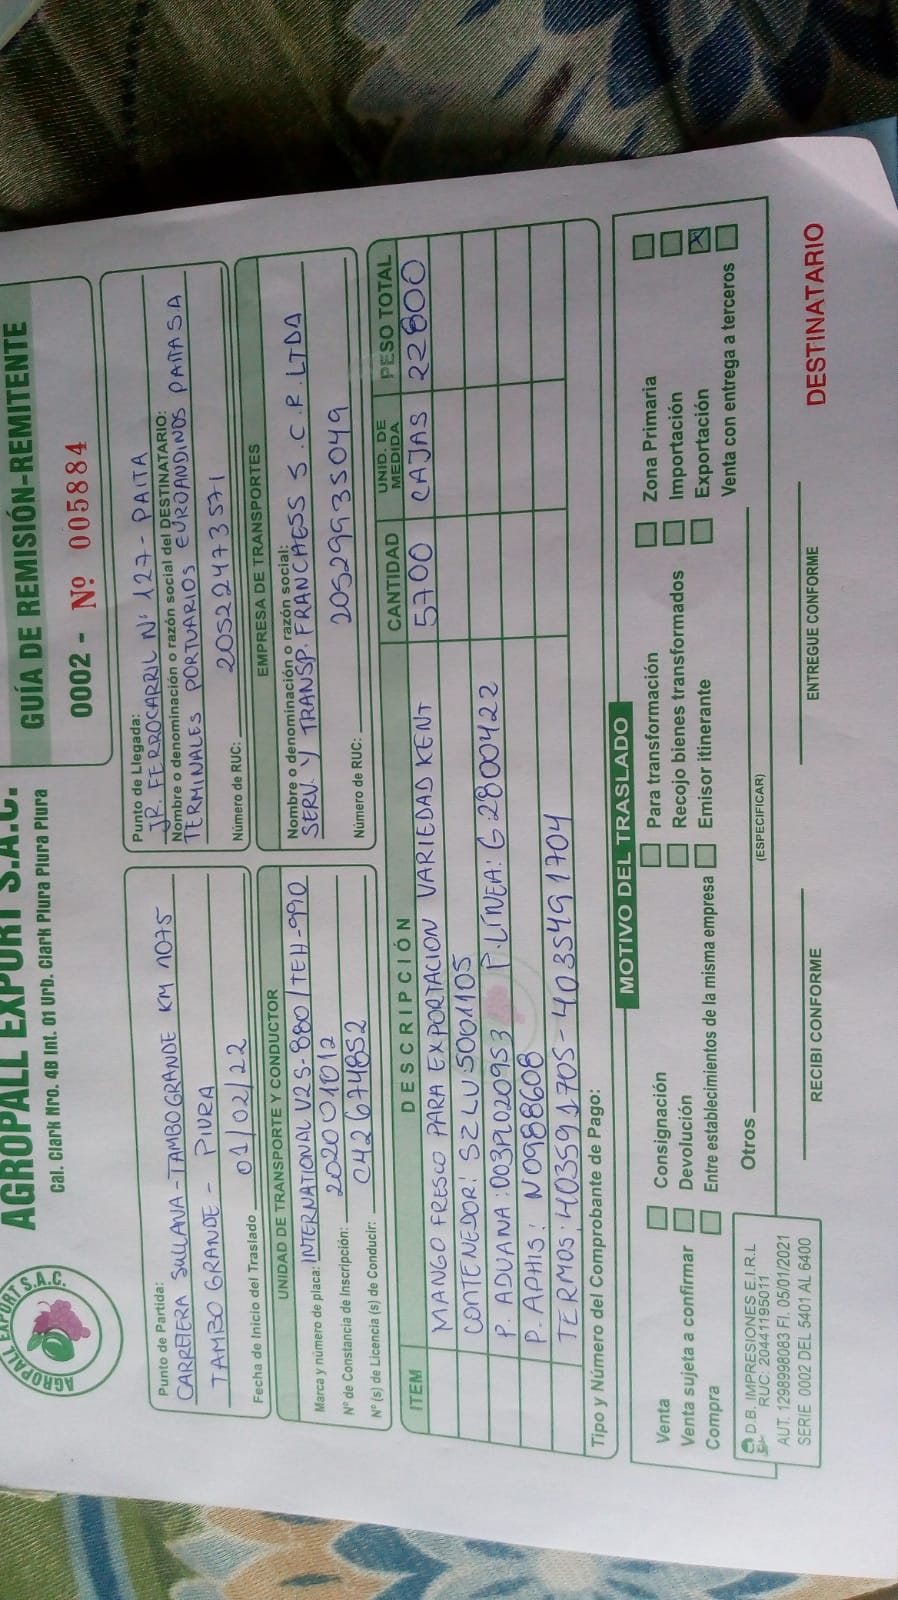 AGROPALL EXPORT S.A.C.
AGROPALL EXPORT S.A.C.
Cal. Clark Nro. 48 Int. 01 Urb. Clark Piura Piura Piura
GUÍA DE REMISIÓN-REMITENTE
0002 - Nº 005884
Punto de Partida:
CARRETERA SULLANA-TAMBOGRANDE KM 1075
TAMBO GRANDE - PIURA
Fecha de Inicio del Traslado 01/02/22
Punto de Llegada:
JR. FERROCARRIL Nº 127 - PAITA
Nombre o denominación o razón social del DESTINATARIO:
TERMINALES PORTUARIOS EUROANDINOS PAITA S.A
Número de RUC: 20522473571
UNIDAD DE TRANSPORTE Y CONDUCTOR
Marca y número de placa: INTERNATIONAL V2S-880/TEH-990
Nº de Constancia de Inscripción: 202001012
Nº (s) de Licencia (s) de Conducir: C42674852
EMPRESA DE TRANSPORTES
Nombre o denominación o razón social:
SERV. Y TRANSP. FRANCHESS S.C.R. LTDA
Número de RUC: 20529935049
ITEM DESCRIPCIÓN CANTIDAD UNID. DE MEDIDA PESO TOTAL
MANGO FRESCO PARA EXPORTACION VARIEDAD KENT 5700 CAJAS 22800
CONTENEDOR: SZLU5001105
P. ADUANA: 003PL020953 P. LÍNEA: G2800422
P. APHIS: N0988608
TERMOS: 403591705 - 4035491704
Tipo y Número del Comprobante de Pago:
MOTIVO DEL TRASLADO
Venta Consignación Para transformación Zona Primaria
Venta sujeta a confirmar Devolución Recojo bienes transformados Importación
Compra Entre establecimientos de la misma empresa Emisor itinerante Exportación X
Venta con entrega a terceros
Otros
(ESPECIFICAR)
D.B. IMPRESIONES E.I.R.L
RUC: 20441195011
AUT. 1298998083 FI. 05/01/2021
SERIE 0002 DEL 5401 AL 6400
RECIBI CONFORME
ENTREGUE CONFORME
DESTINATARIO